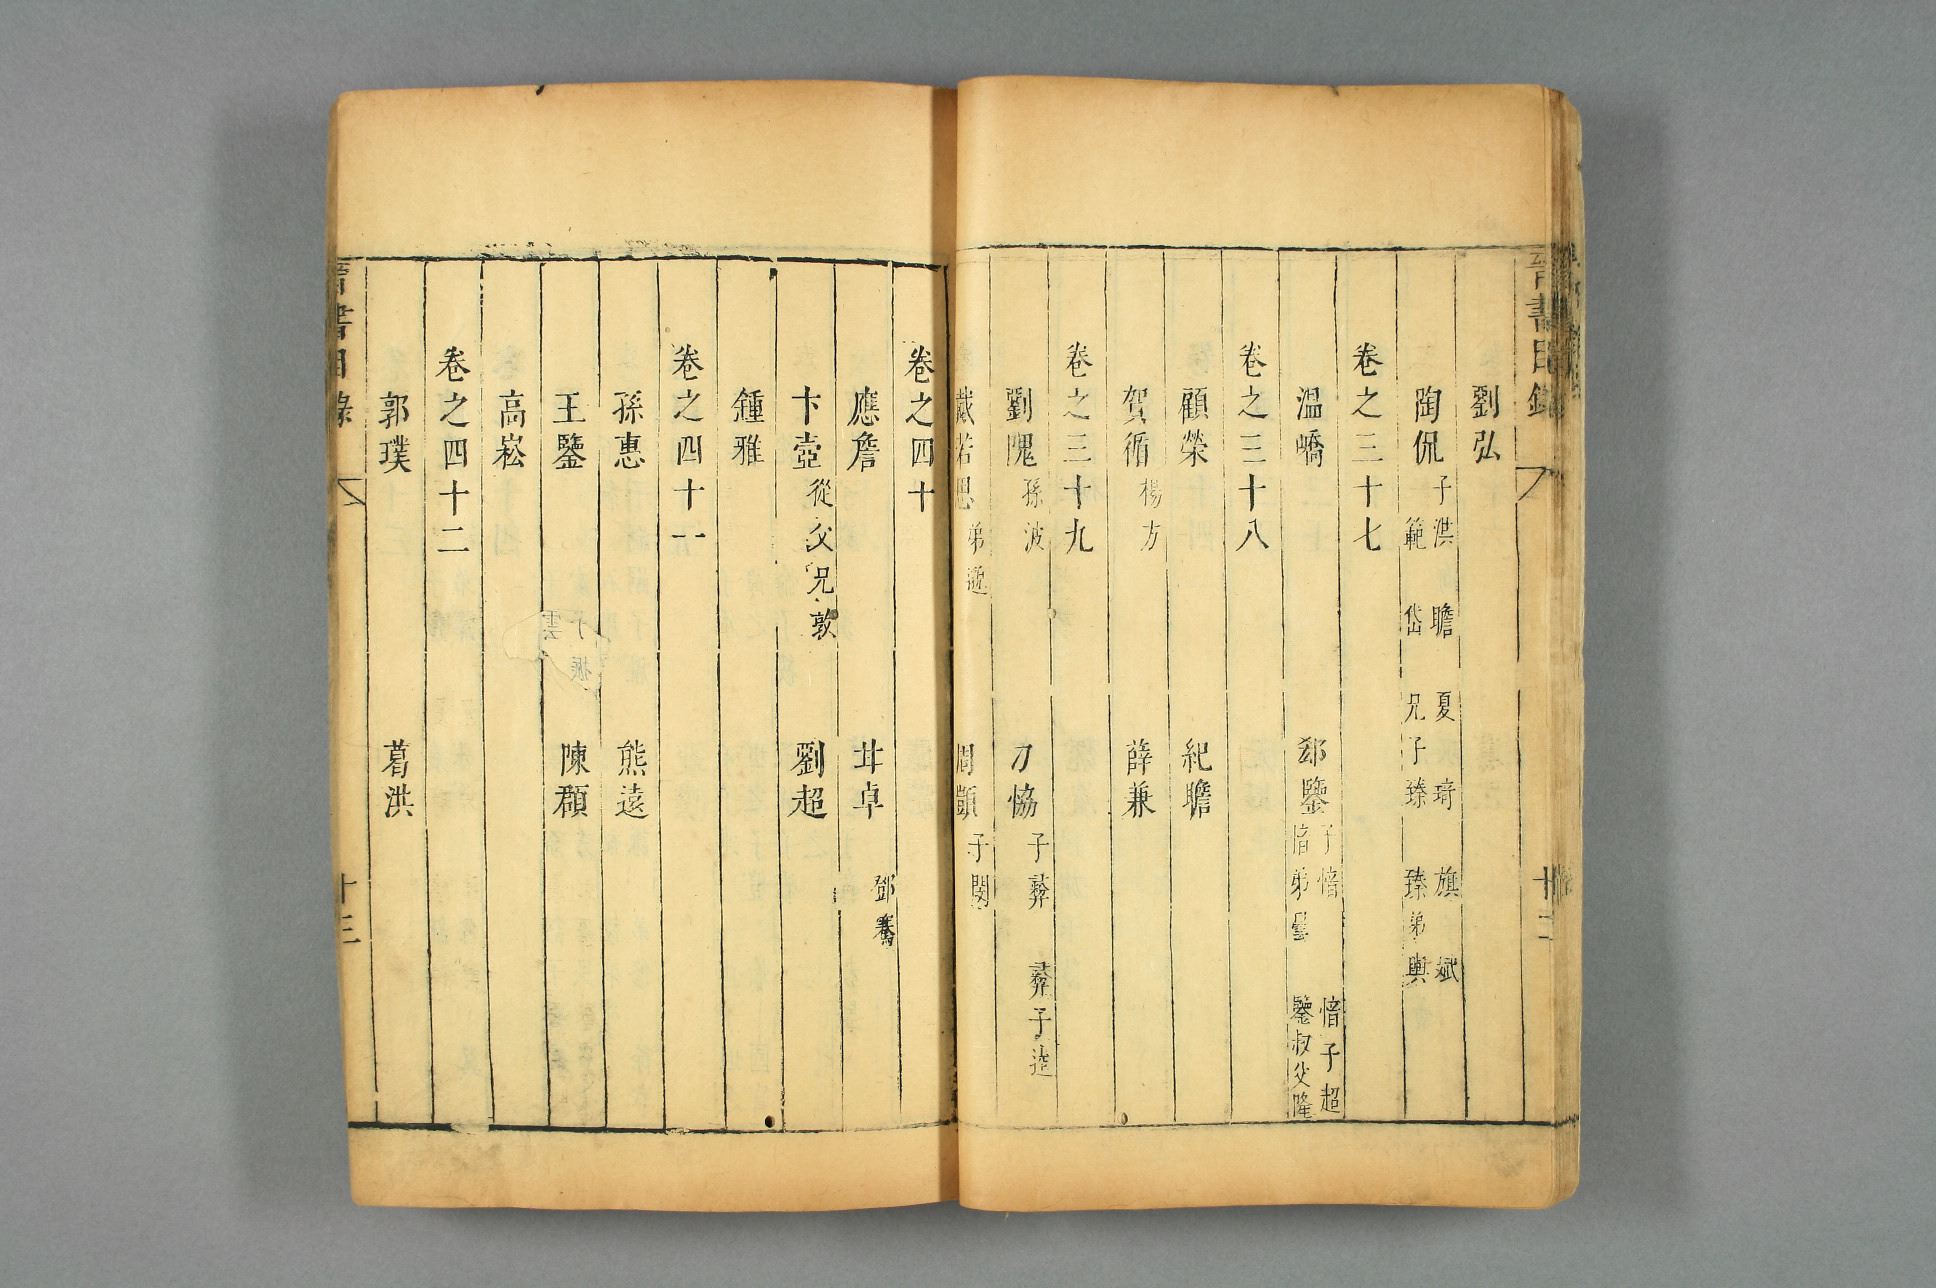 晉書目錄
劉弘
陶侃 子洪 瞻 夏 琦 旗 斌 範 岱 兄子臻 臻弟輿
卷之三十七
溫嶠 郄鑒 子愔 愔子超 愔弟曇 鑒叔父隆
卷之三十八
顧榮 紀瞻
賀循 楊方 薛兼
卷之三十九
劉隗 孫波 刀協 子彝 彝子逵
戴若思 弟邈 周顗 子閔
卷之四十
應詹 甘卓 鄧騫
卞壼 從父兄敦 劉超
鍾雅
卷之四十一
孫惠 熊遠
王鑒 陳頵
高崧
卷之四十二
郭璞 葛洪
晉書目錄 十三